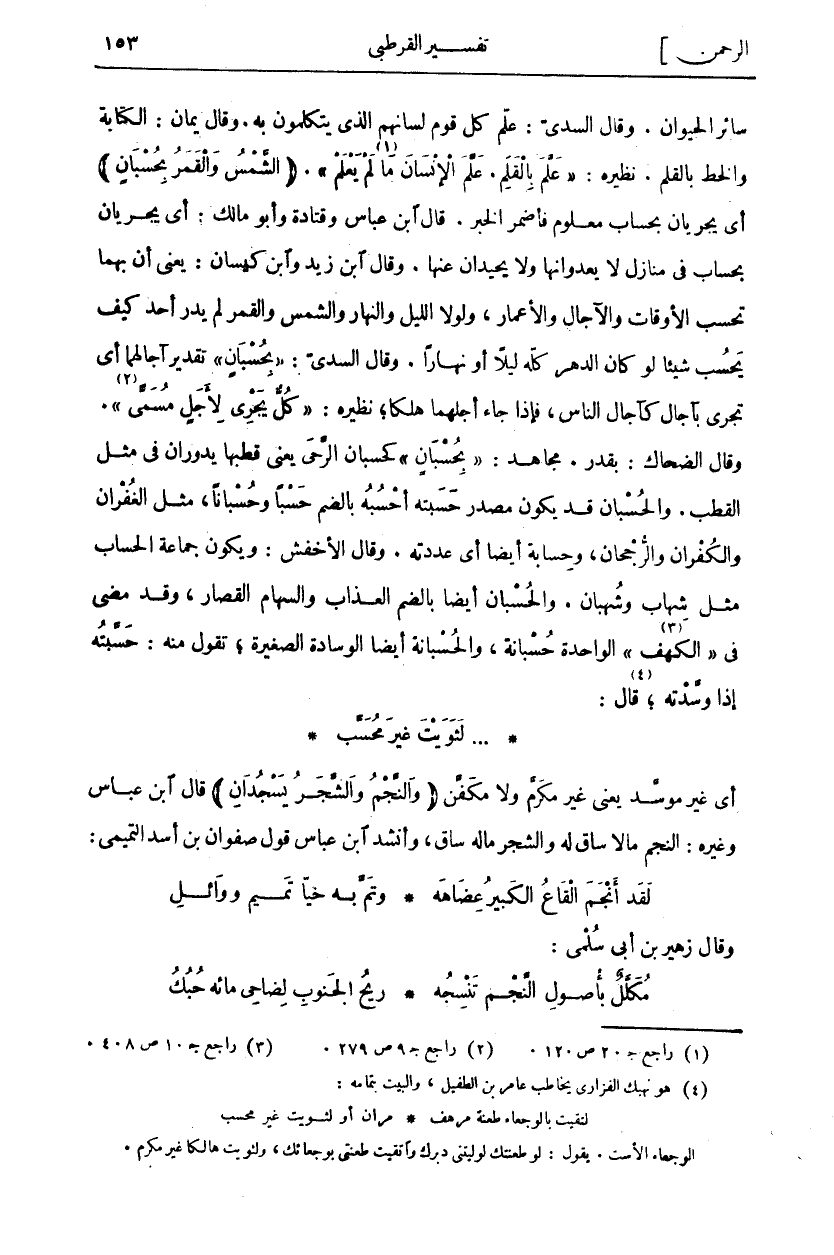 الرحمن ] تفسير القرطبى ١٥٣
سائر الحيوان . وقال السدىّ : علّم كل قوم لسانهم الذى يتكلمون به . وقال يمان : الكتابة
والخط بالقلم . نظيره : « عَلَّمَ بِالْقَلَمِ . عَلَّمَ الْإِنْسَانَ مَا لَمْ يَعْلَمْ » (١) . ﴿ الشَّمْسُ وَالْقَمَرُ بِحُسْبَانٍ ﴾
أى يجريان بحساب معلوم فأضمر الخبر . قال ٱبن عباس وقتادة وأبو مالك : أى يجريان
بحساب فى منازل لا يعدوانها ولا يحيدان عنها . وقال ٱبن زيد وٱبن كيسان : يعنى أن بهما
تحسب الأوقات والآجال والأعمار ، ولولا الليل والنهار والشمس والقمر لم يدر أحد كيف
يَحسُب شيئا لو كان الدهر كلّه ليلًا أو نهارًا . وقال السدىّ : « بِحُسْبَانٍ » تقدير آجالهما أى
تجرى بآجال كآجال الناس ، فإذا جاء أجلهما هلكا ؛ نظيره : « كُلٌّ يَجْرِى لِأَجَلٍ مُسَمًّى » (٢) .
وقال الضحاك : بقدر . مجاهد : « بِحُسْبَانٍ » كحسبان الرَّحَى يعنى قطبها يدوران فى مثل
القطب . والحُسْبان قد يكون مصدر حَسَبته أحْسُبُه بالضم حَسْبًا وحُسْبانًا ، مثل الغُفْران
والكُفْران والرُّجْحان ، وحِسابة أيضا أى عددته . وقال الأخفش : ويكون جماعة الحساب
مثل شِهاب وشُهبان . والحُسْبان أيضا بالضم العذاب والسهام القصار ، وقد مضى
فى « الكهف » (٣) الواحدة حُسْبانة ، والحُسْبانة أيضا الوسادة الصغيرة ؛ تقول منه : حَسَّبْتُه
إذا وسَّدْته ؛ قال (٤) :
* ... لَثَوَيْتَ غيرَ مُحَسَّب *
أى غير موسَّد يعنى غير مكرَّم ولا مكفَّن ﴿ وَالنَّجْمُ وَالشَّجَرُ يَسْجُدَانِ ﴾ قال ٱبن عباس
وغيره : النجم مالا ساق له والشجر ماله ساق ، وأنشد ٱبن عباس قول صفوان بن أسد التميمى :
لَقَد أَنْجَمَ الْقَاعُ الكَبيرُ عِضَاهَه * وتَمَّ به حَيَّا تَميم ووَائلِ
وقال زهير بن أبى سُلْمى :
مُكَلَّلٌ بأُصولِ النَّجْمِ تَنْسِجُه * ريحُ الجَنوبِ لِضاحِى مائه حُبُكُ
(١) راجع جـ ٢٠ ص ١٢٠ . (٢) راجع جـ ٩ ص ٢٧٩ . (٣) راجع جـ ١٠ ص ٤٠٨ .
(٤) هو نهيك الفزارى يخاطب عامر بن الطفيل ، والبيت بتمامه :
لتقيت بالوجعاء طعنة مرهف * مران أو لثويت غير محسب
الوجعاء الأست . يقول : لو طعنتك لوليتنى دبرك وٱتقيت طعنتى بوجعائك ، ولثويت هالكا غير مكرم .